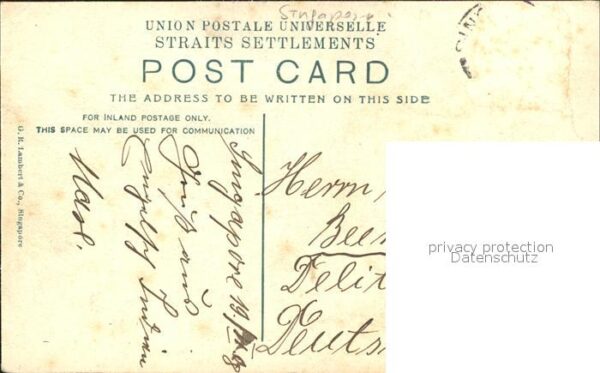 Singapore
UNION POSTALE UNIVERSELLE
STRAITS SETTLEMENTS
POST CARD
THE ADDRESS TO BE WRITTEN ON THIS SIDE
FOR INLAND POSTAGE ONLY.
THIS SPACE MAY BE USED FOR COMMUNICATION
G. R. Lambert & Co., Singapore
Singapore 19.
Gruß aus
Englisch Indien
Herrn
Delit
Deuts
privacy protection
Datenschutz